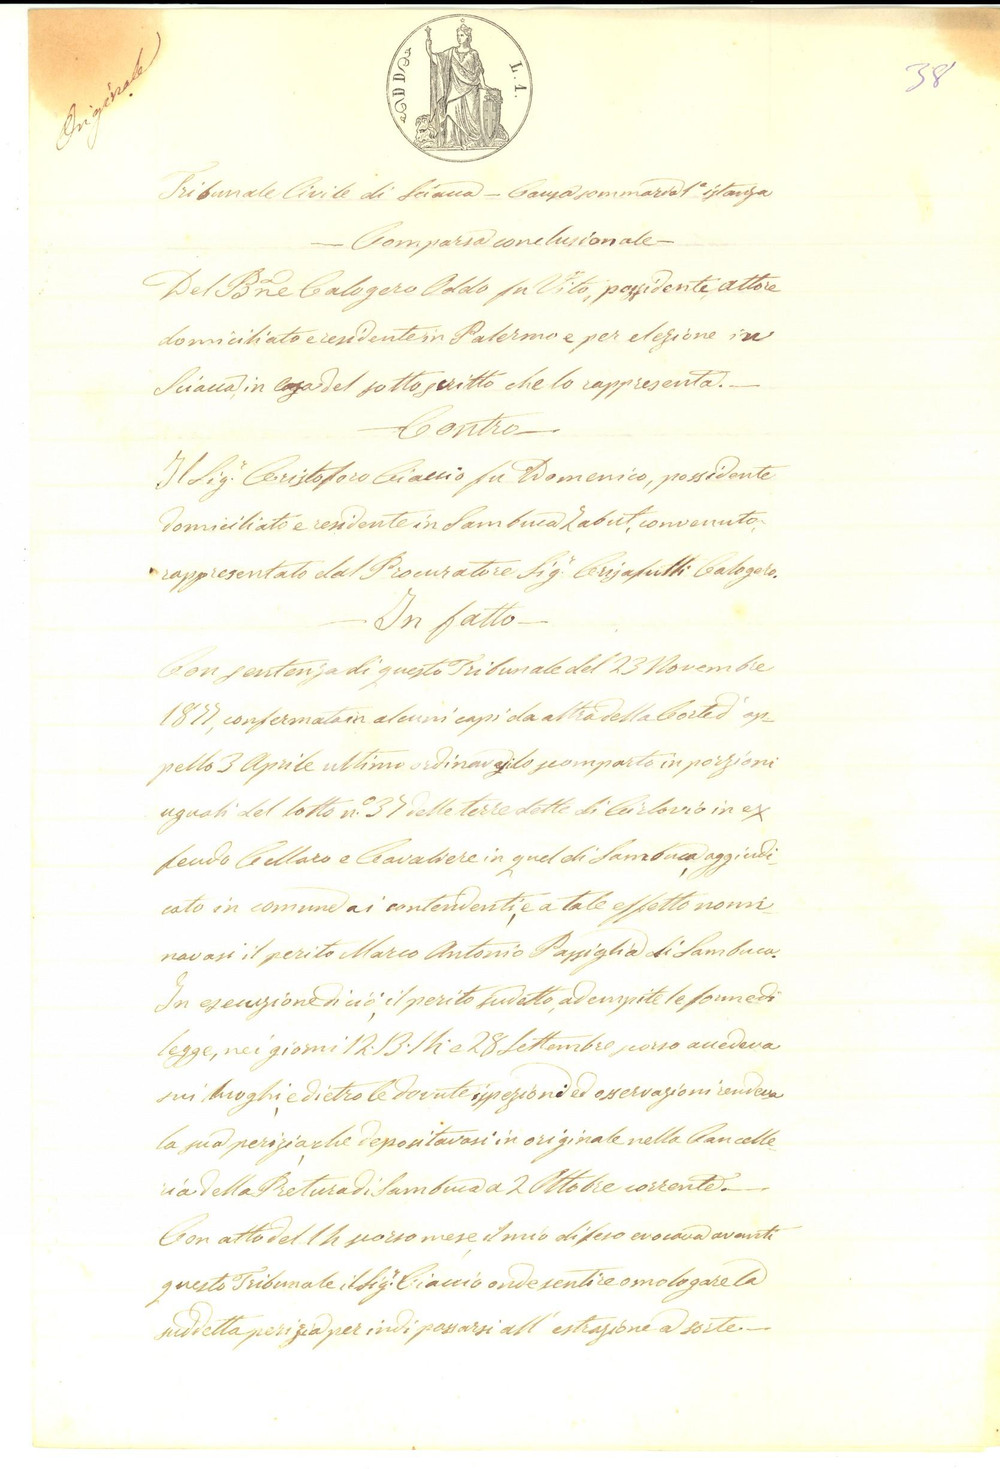 Originale
38
DD L. 1.
Tribunale Civile di Sciacca – Causa sommaria 1ª istanza
— Comparsa conclusionale —
Del Bne Calogero Oddo fu Vito, possidente, attore
domiciliato e residente in Palermo e per elezione in
Sciacca, in casa del sottoscritto che lo rappresenta. —
— Contro —
Il Sigr Cristoforo Ciaccio fu Domenico, possidente
domiciliato e residente in Sambuca Zabut, convenuto,
rappresentato dal Procuratore Sigr Crisafulli Calogero.
— In fatto —
Con sentenza di questo Tribunale del 23 Novembre
1877, confermata in alcuni capi da altra della Corte d'ap-
pello 3 Aprile ultimo ordinavasi lo scomparto in porzioni
uguali del lotto n.° 37 delle terre dette di in ex
feudo Cellaro e Cavaliere in quel di Sambuca, aggiudi-
cato in comune ai contendenti, e a tale effetto nomi-
navasi il perito Marco Antonio di Sambuca.
In esecuzione di ciò, il perito sudetto, adempite le forme di
legge, nei giorni 12. 13. 14 e 28 Settembre scorso accedeva
sui luoghi, e dietro le dovute ispezioni ed osservazioni rendeva
la sua perizia, che depositavasi in originale nella Cancelle-
ria della Pretura di Sambuca a 2 Ottobre corrente. —
Con atto del 14 scorso mese, il mio difeso evocava avanti
questo Tribunale il Sigr Ciaccio onde sentire omologare la
suddetta perizia per indi passarsi all'estrazione a sorte. —